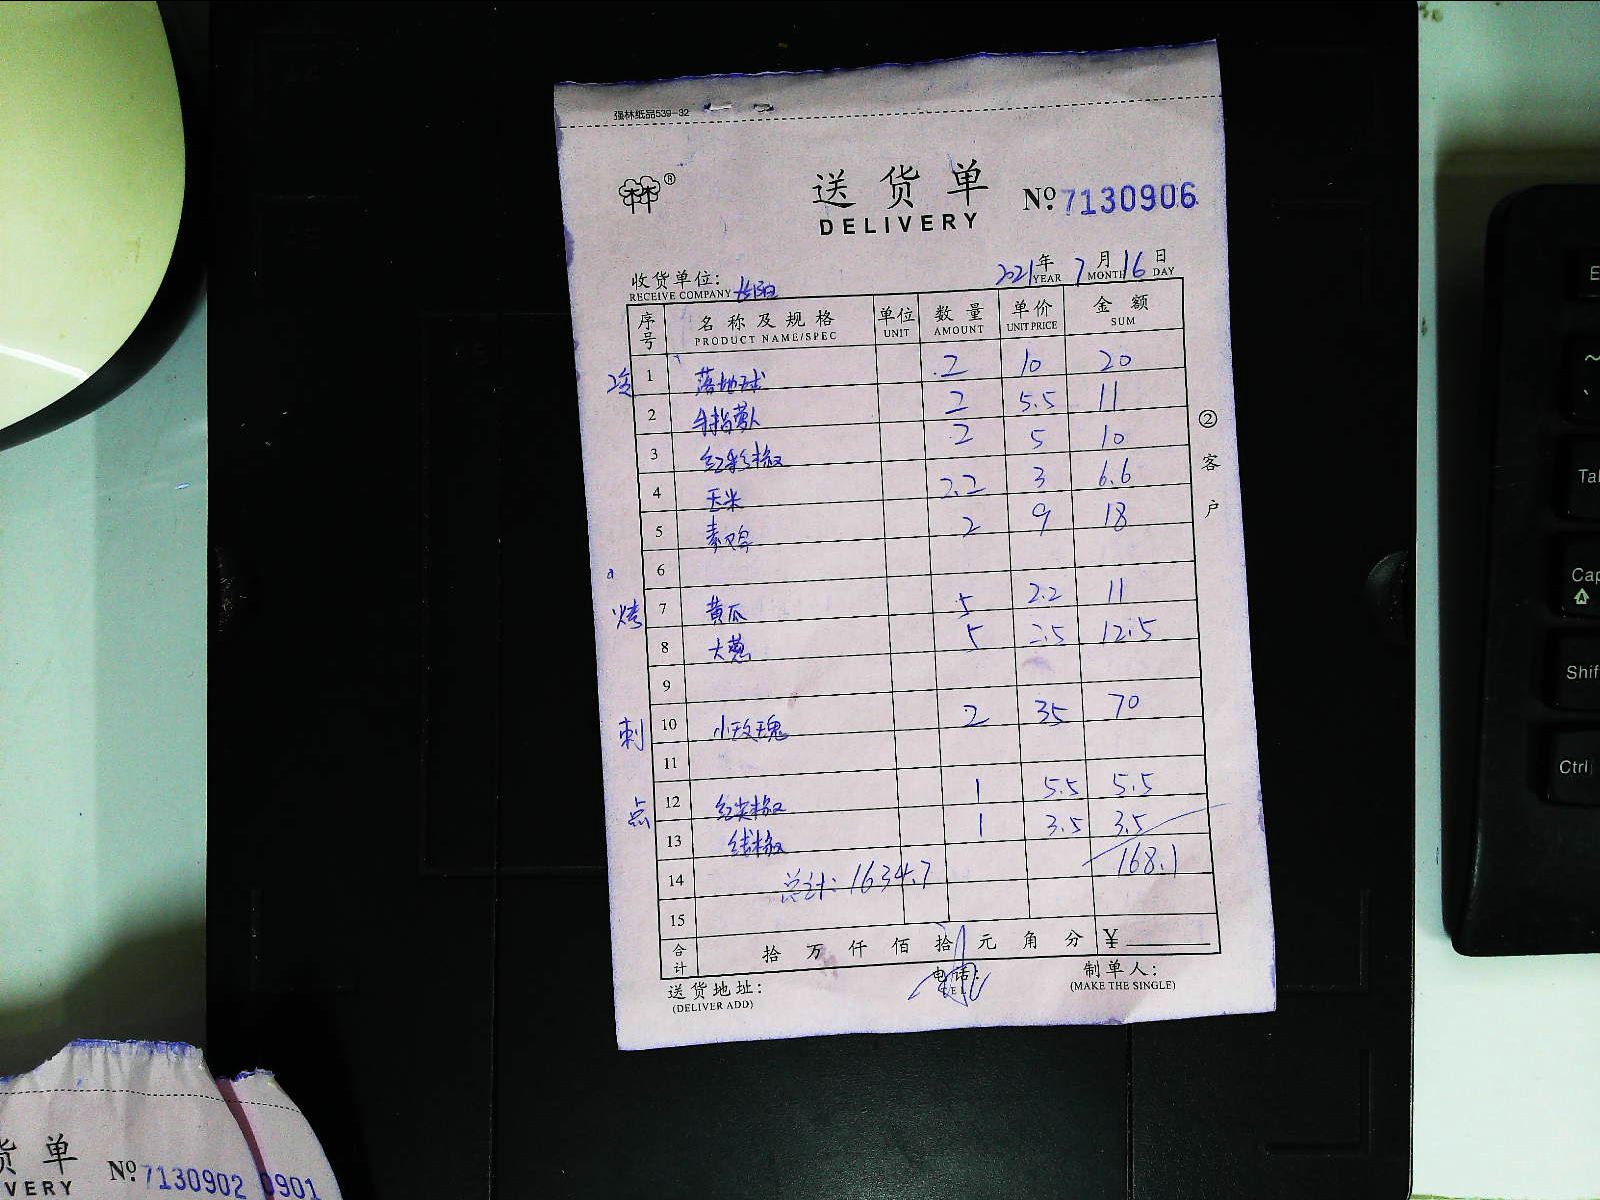 强林纸品539-32
林林®
送货单 No.7130906
DELIVERY
收货单位: 2021年7月16日
RECEIVE COMPANY YEAR MONTH DAY
序号 名称及规格 单位 数量 单价 金额
PRODUCT NAME/SPEC UNIT AMOUNT UNIT PRICE SUM
冷 1 落地球 2 10 20
2 手指萝卜 2 5.5 11
3 红彩椒 2 5 10
4 玉米 2.2 3 6.6
5 素鸡 2 9 18
6
烤 7 黄瓜 5 2.2 11
8 大葱 5 2.5 12.5
9
刺 10 小玫瑰 2 35 70
11
点 12 红尖椒 1 5.5 5.5
13 线椒 1 3.5 3.5
14 总计:1634.7 168.1
15
合计 拾万仟佰拾元角分 ¥
送货地址: 电话: 制单人:
(DELIVER ADD) TEL (MAKE THE SINGLE)
②客户
货单 No.7130902 0901
VERY
E
~
Tab
Cap
Shif
Ctrl